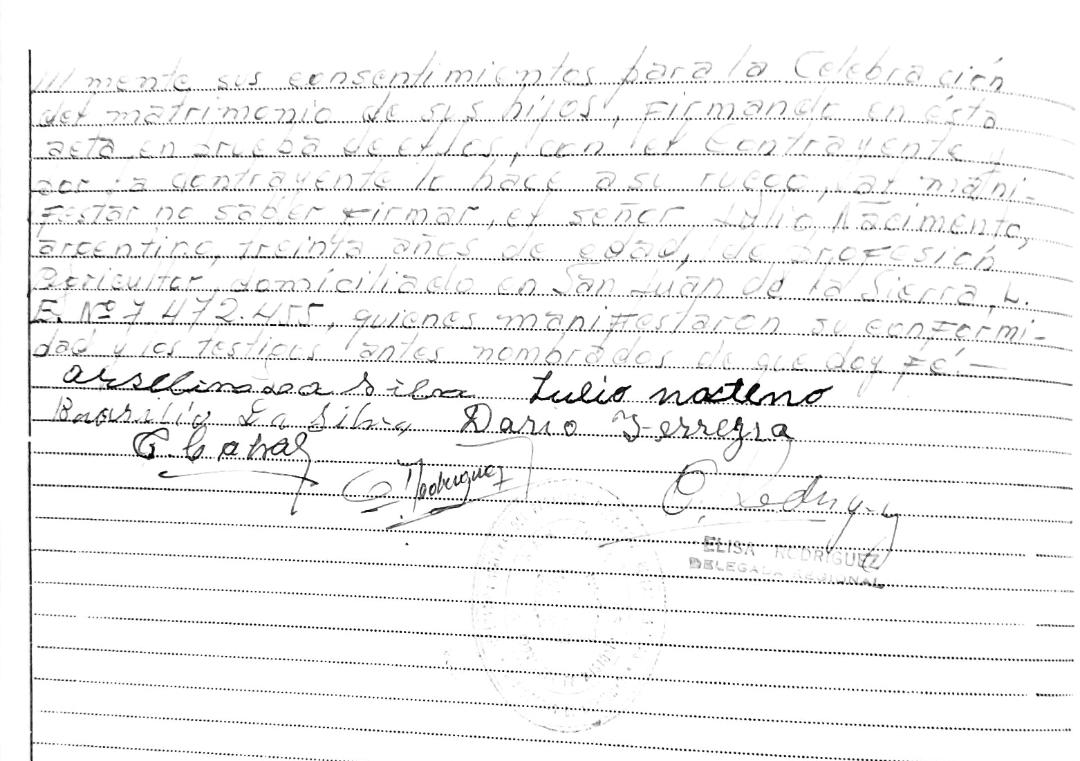 /// mente sus consentimientos para la Celebración
del matrimonio de sus hijos, Firmando en ésta
acta en prueba de ellos, con el Contrayente y
por la contrayente lo hace a su ruego, al mani-
Festar no saber Firmar, el señor Julio Nacimento,
argentino, treinta años de edad, de profesión
agricultor, domiciliado en San Juan de la Sierra, L.
E. Nº 7.472.455, quienes manifestaron su conFormi-
dad y los testigos antes nombrados de que doy Fé.—
arselino da Silva Julio
Da Silva Dario Ferreyra
C. Cabral
Rodriguez
ELISA RODRIGUEZ
DELEGADO REGIONAL